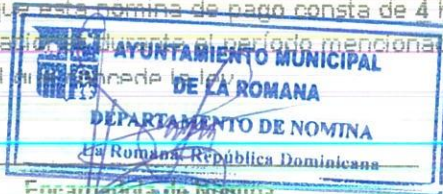 que esta nomina de pago consta de 4
durante el período mencionad
la ley
AYUNTAMIENTO MUNICIPAL
DE LA ROMANA
DEPARTAMENTO DE NOMINA
La Romana, República Dominicana